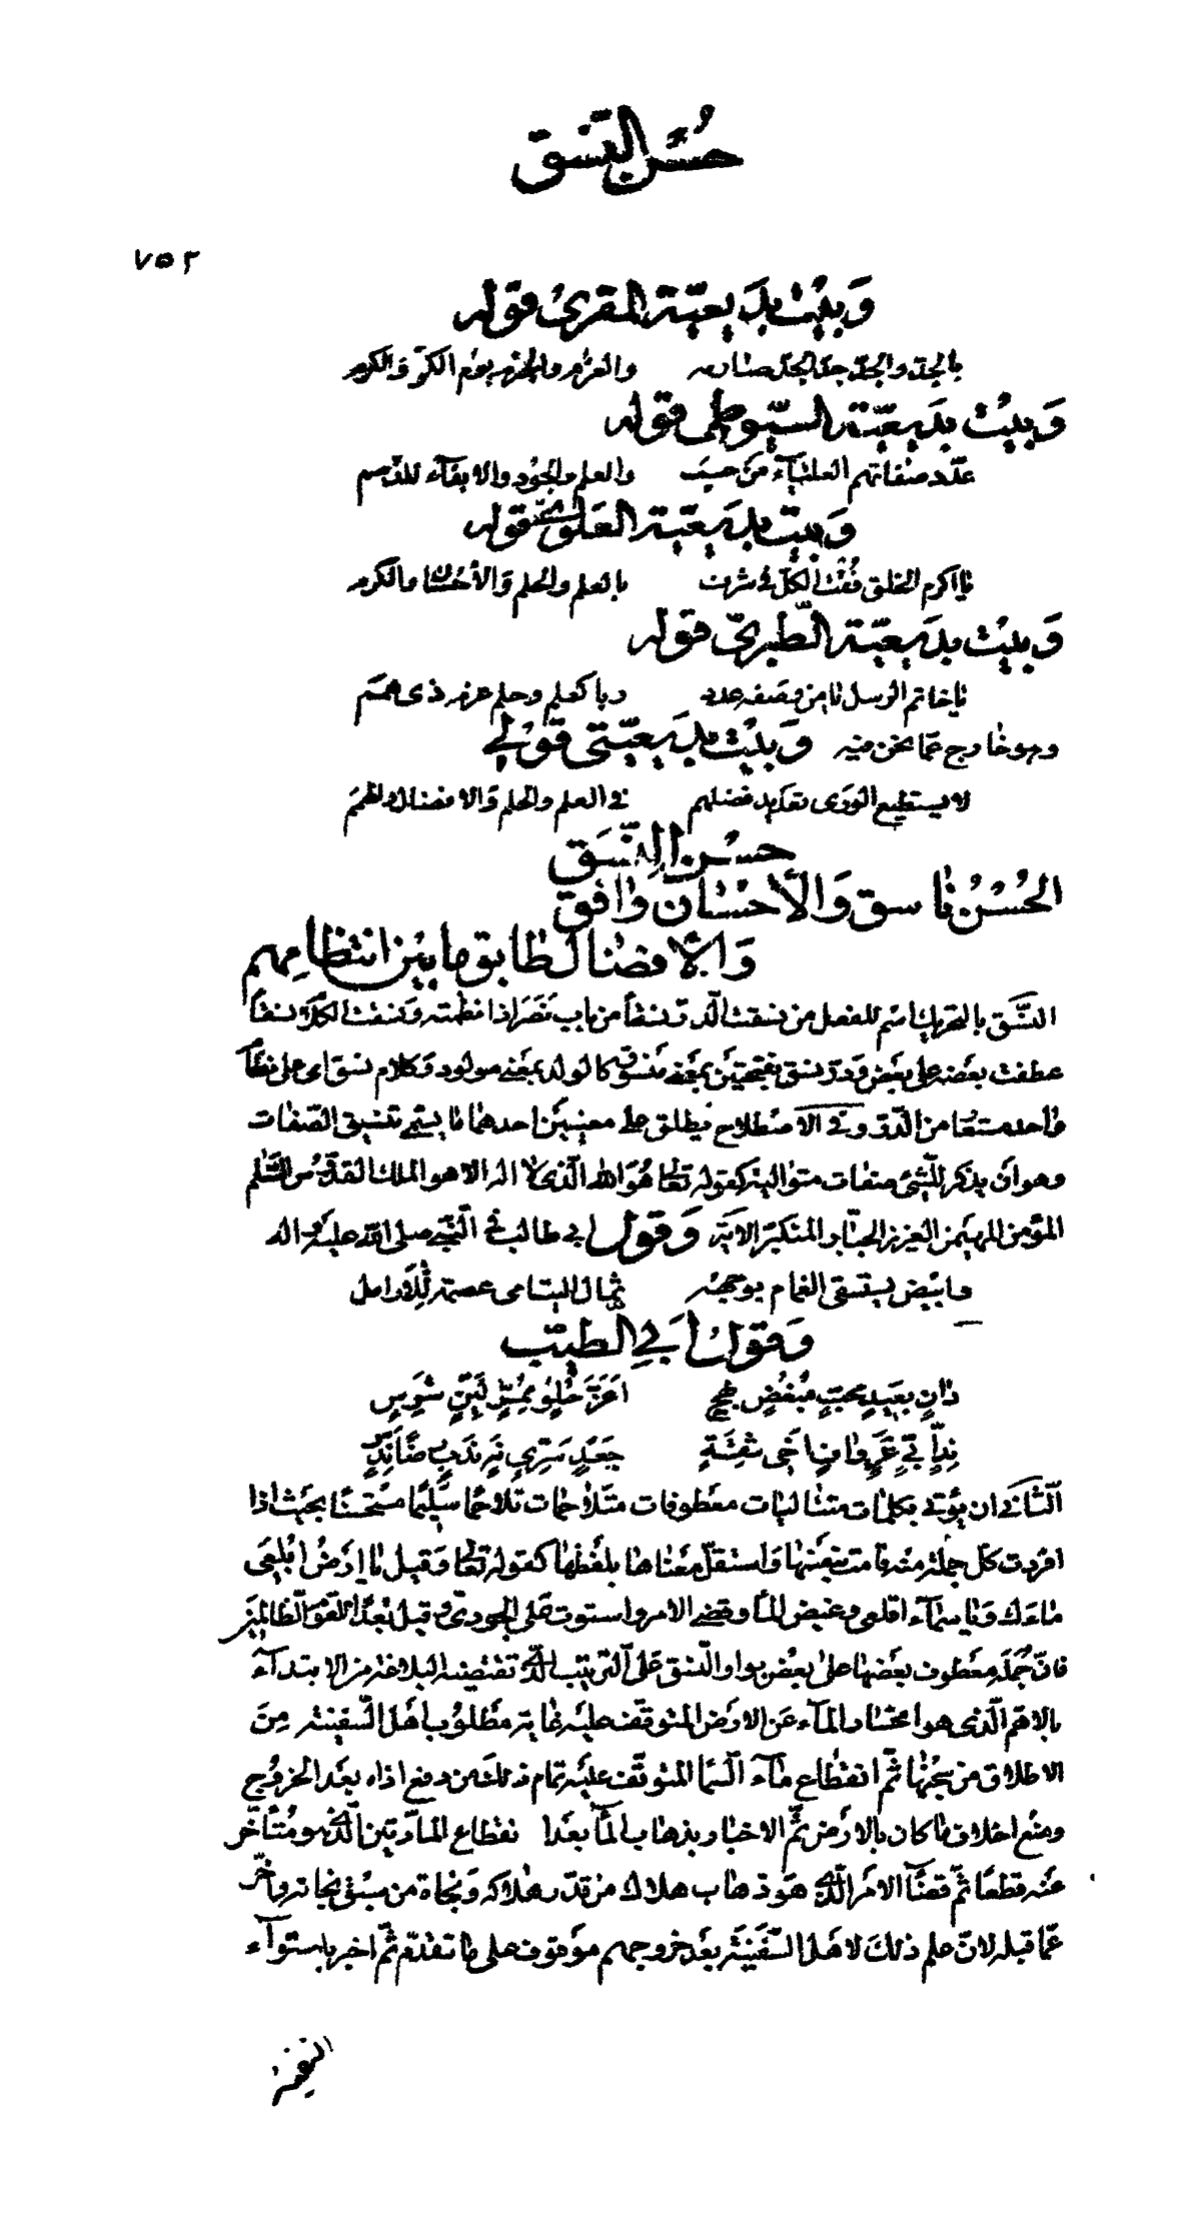 حُسْنُ النَّسَق
٧٥٢
وَبَيْتُ بَدِيعِيَّةِ المقري قوله
بالجدّ والجدّ جدّ الجدّ والعزم والحزم يوم الكرّ والكرم
وَبَيْتُ بَدِيعِيَّةِ السّيوطى قوله
عدّد صفاتهم العلياء من حسب والعلم والجود والايفاء للذّمم
وَبَيْتُ بَدِيعِيَّةِ العَلَوىّ قوله
يا اكرم الخلق فُقْتَ الكلّ فى شرف بالعلم والحلم وَالأحْسٰان والكرم
وَبَيْتُ بَدِيعِيَّةِ الطّبريّ قوله
يا خاتم الرسل يا من وصفه عدد وحلم عزمه ذى همم
وهو خارج عمّا نحن فيه وَبَيْتُ بَدِيعِيَّتى قَوْلي
لا يستطيع الورى تعديد فضلهم فى العلم والحلم وَالافضال والهمم
حسْن النّسَق
الحُسْنُ نٰاسق وَالأحْسٰان وٰافق
وَالأفضٰال طٰابق ما بيْن انتظامِهم
النّسَق بالتحريك اسْم للفعل من نسقت الدّرّ نسْقاً من باب نَصَرَ اذا نظمته وَنسقت الكلام نسقاً
عطفت بعضه على بعْض وَدرّ نسق بفتحتيْن بمعْنى منْسوق كالولد بمعْنى مولود وَكلام نسق اى على نظام
واحد مستعٰار من الدّرّ وفى الاصْطلاح يطلق على معنيين احدهما ما يسمّى تنسيق الصّفات
وهو ان يذكر للشّئ صفات متوالية كقوله تعالى هُوَ الله الّذى لا اله الا هو الملك القدّوسُ السّلام
المؤمن المهيمن العزيز الجبّار المتكبّر الآية وَقول ابى طالب فى النّبىّ صلى الله عليه واله
وابْيض يستسقى الغمام بوجهه ثمال اليتامى عصمة للأرامل
وَقول ابى الطيّب
دٰانٍ بعيدٍ محبٍّ مُبْغضٍ بهجٍ اغرّ حُلوٍ ممرٍّ ليّنٍ شرسٍ
ندٍ ابىّ غَرٍ وٰافٍ اخى ثقةٍ جَعْدٍ سَرىٍّ نهٍ ندْبٍ رضاً ندُسٍ
الثّانى ان يؤتى بكلمٰات متتاليات معْطوفات متلاحمات تلاحماً سليماً مستحْسناً بحيْث اذا
افردت كلّ جملة منه قامت بنفسها وَاستقلّ معْناها بلفظها كقوله تعالى وَقيل يا ارْضُ ابْلعى
ماءك وَيا سمٰآء اقلعى وغيض المآء وقضى الامر واستوت على الجودىّ وقيل بُعْداً للقوم الظّالمين
فانّ جُملَه معْطوف بعضها على بعْض بواو النّسق على التّرتيب الّذى تقتضيه البلاغة من الابتدآء
بالاهمّ الّذى هو انحسار المآء عَن الارض المتوقّف عليه غاية مطلوب اهْل السّفينة مِنَ
الاطلاق من سجْنها ثمّ انقطاع مٰآء السّماء المتوقّف عليه تمام ذلك من دفع اذاه بعد الخروج
ومنع اخلاف ما كان بالارض ثمّ الاخبار بذهاب المآء بعْد انقطاع المادّتين الّذى هو مُتأخّر
عنه قطعاً ثمّ قضٰاء الامْر الّذى هو ذهاب هلاك من قدّر هلاكه وَنجاة من سبق نجاته واخّر
عمّا قبله لانّ علم ذلك لاهل السّفينة بعْد خروجهم موْقوف على ما تقدّم ثمّ اخبر باستوآء
السّفينة